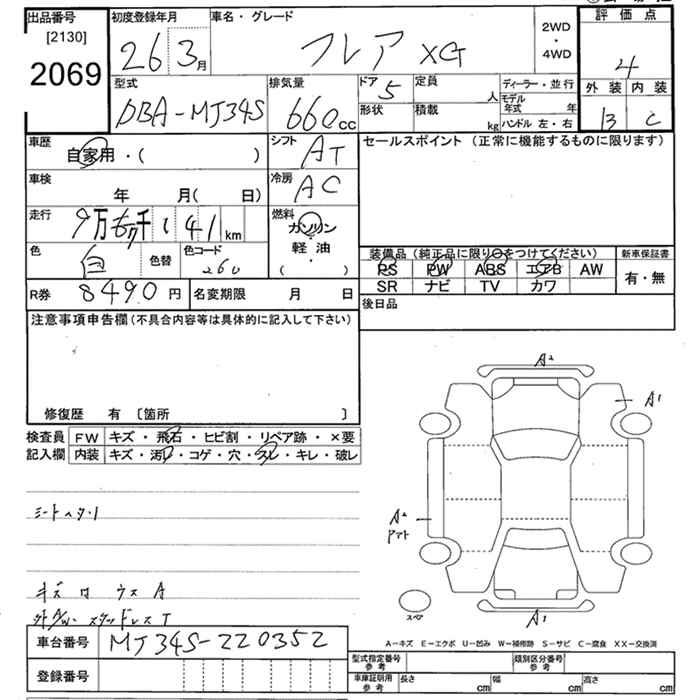 出品番号 初度登録年月 車名・グレード 2WD・4WD 評価点
[2130]
2069 26 3月 フレア XG 4
型式 排気量 ドア 5 定員 人 ディーラー・並行 外装 内装
DBA-MJ34S 660cc 形状 積載 kg モデル年式 年 ハンドル 左・右 B C
車歴 自家用・( ) シフト AT セールスポイント (正常に機能するものに限ります)
車検 年 月( 日) 冷房 AC
走行 9万 千 141 km 燃料 ガソリン
色 白 色替 色コード 26U 軽・油
・
( )
装備品(純正品に限り○をつけてください) 新車保証書
PS PW ABS エアB AW 有・無
SR ナビ TV カワ
R券 8490円 名変期限 月 日 後日品
注意事項申告欄(不具合内容等は具体的に記入して下さい)
修復歴 有 [箇所 ]
検査員 FW キズ・飛石・ヒビ割・リペア跡・×要
記入欄 内装 キズ・汚れ・コゲ・穴・スレ・キレ・破レ
A2
A1
シートヘタリ
A2
アマト
キズ ウスA
外AW・スタッドレスT
スペア
A1
A-キズ E-エクボ U-凹み W-補修跡 S-サビ C-腐食 XX-交換済
車台番号 MJ34S-220352
型式指定番号 参考 類別区分番号 参考
登録番号
車庫証明用 参考 長さ cm 幅 cm 高さ cm